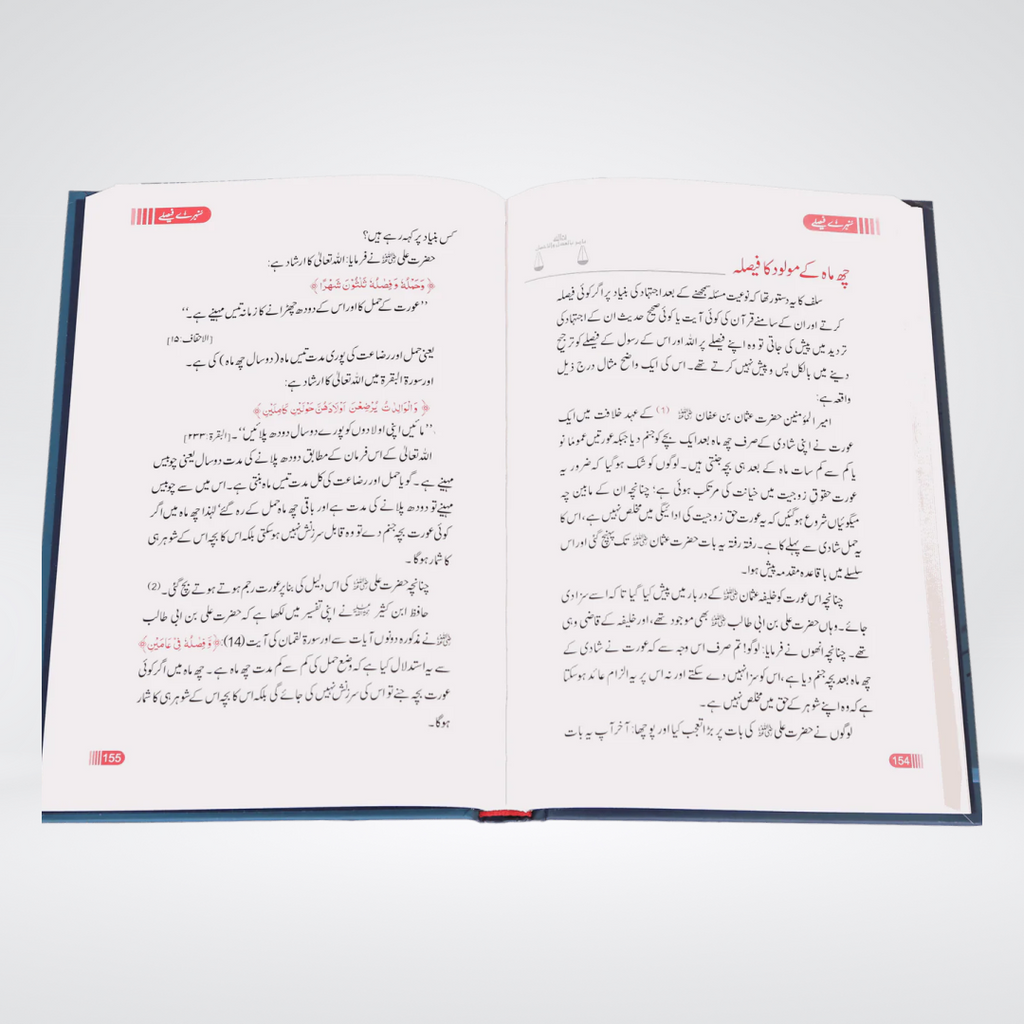 سنہرے فیصلے
چھ ماہ کے مولود کا فیصلہ
سلف کا یہ دستور تھا کہ نوعیت مسئلہ سمجھنے کے بعد اجتہاد کی بنیاد پر اگر کوئی فیصلہ
کرتے اور ان کے سامنے قرآن کی کوئی آیت یا کوئی صحیح حدیث ان کے اجتہاد کی
تردید میں پیش کی جاتی تو وہ اپنے فیصلے پر اللہ اور اس کے رسول کے فیصلے کو ترجیح
دینے میں بالکل پس و پیش نہیں کرتے تھے۔ اس کی ایک واضح مثال درج ذیل
واقعہ ہے:
امیر المؤمنین حضرت عثمان بن عفان رضی اللہ عنہ (1) کے عہد خلافت میں ایک
عورت نے اپنی شادی کے صرف چھ ماہ بعد ایک بچے کو جنم دیا جبکہ عورتیں عموماً نو
یا کم سے کم سات ماہ کے بعد ہی بچہ جنتی ہیں۔ لوگوں کو شک ہو گیا کہ ضرور یہ
عورت حقوق زوجیت میں خیانت کی مرتکب ہوئی ہے؛ چنانچہ ان کے مابین چہ
میگوئیاں شروع ہو گئیں کہ یہ عورت حق زوجیت کی ادائیگی میں مخلص نہیں ہے، اس کا
یہ حمل شادی سے پہلے کا ہے۔ رفتہ رفتہ یہ بات حضرت عثمان رضی اللہ عنہ تک پہنچ گئی اور اس
سلسلے میں باقاعدہ مقدمہ پیش ہوا۔
چنانچہ اس عورت کو خلیفہ عثمان رضی اللہ عنہ کے دربار میں پیش کیا گیا تاکہ اسے سزا دی
جائے۔ وہاں حضرت علی بن ابی طالب رضی اللہ عنہ بھی موجود تھے، اور خلیفہ کے قاضی وہی
تھے۔ چنانچہ انھوں نے فرمایا: لوگو! تم صرف اس وجہ سے کہ عورت نے شادی کے
چھ ماہ بعد بچہ جنم دیا ہے، اس کو سزا نہیں دے سکتے اور نہ اس پر یہ الزام عائد ہو سکتا
ہے کہ وہ اپنے شوہر کے حق میں مخلص نہیں ہے۔
لوگوں نے حضرت علی رضی اللہ عنہ کی بات پر بڑا تعجب کیا اور پوچھا: آخر آپ یہ بات
154
سنہرے فیصلے
کس بنیاد پر کہہ رہے ہیں؟
حضرت علی رضی اللہ عنہ نے فرمایا: اللہ تعالیٰ کا ارشاد ہے:
﴿وَحَمْلُهُ وَفِصَٰلُهُ ثَلَٰثُونَ شَهْرًا﴾
’’عورت کے حمل کا اور اس کے دودھ چھڑانے کا زمانہ تیس مہینے ہے۔‘‘
[الاحقاف:۱۵]
یعنی حمل اور رضاعت کی پوری مدت تیس ماہ (دو سال چھ ماہ) کی ہے۔
اور سورۃ البقرۃ میں اللہ تعالیٰ کا ارشاد ہے:
﴿وَالْوَالِدَٰتُ يُرْضِعْنَ أَوْلَادَهُنَّ حَوْلَيْنِ كَامِلَيْنِ﴾
’’مائیں اپنی اولادوں کو پورے دو سال دودھ پلائیں‘‘۔ [البقرۃ:۲۳۳]
اللہ تعالیٰ کے اس فرمان کے مطابق دودھ پلانے کی مدت دو سال یعنی چوبیس
مہینے ہے۔ گویا حمل اور رضاعت کی کل مدت تیس ماہ بنتی ہے۔ اس میں سے چوبیس
مہینے تو دودھ پلانے کی مدت ہے اور باقی چھ ماہ حمل کے رہ گئے؛ لہٰذا چھ ماہ میں اگر
کوئی عورت بچہ جنم دے تو وہ قابل سرزنش نہیں ہو سکتی بلکہ اس کا بچہ اس کے شوہر ہی
کا شمار ہو گا۔
چنانچہ حضرت علی رضی اللہ عنہ کی اس دلیل کی بنا پر عورت رجم ہوتے ہوتے بچ گئی۔ (2)
حافظ ابن کثیر رحمہ اللہ نے اپنی تفسیر میں لکھا ہے کہ حضرت علی بن ابی طالب
رضی اللہ عنہ نے مذکورہ دونوں آیات سے اور سورۃ لقمان کی آیت (14): ﴿وَفِصَٰلُهُ فِي عَامَيْنِ﴾
سے یہ استدلال کیا ہے کہ وضع حمل کی کم سے کم مدت چھ ماہ ہے۔ چھ ماہ میں اگر کوئی
عورت بچہ جنے تو اس کی سرزنش نہیں کی جائے گی بلکہ اس کا بچہ اس کے شوہر ہی کا شمار
ہوگا۔
155